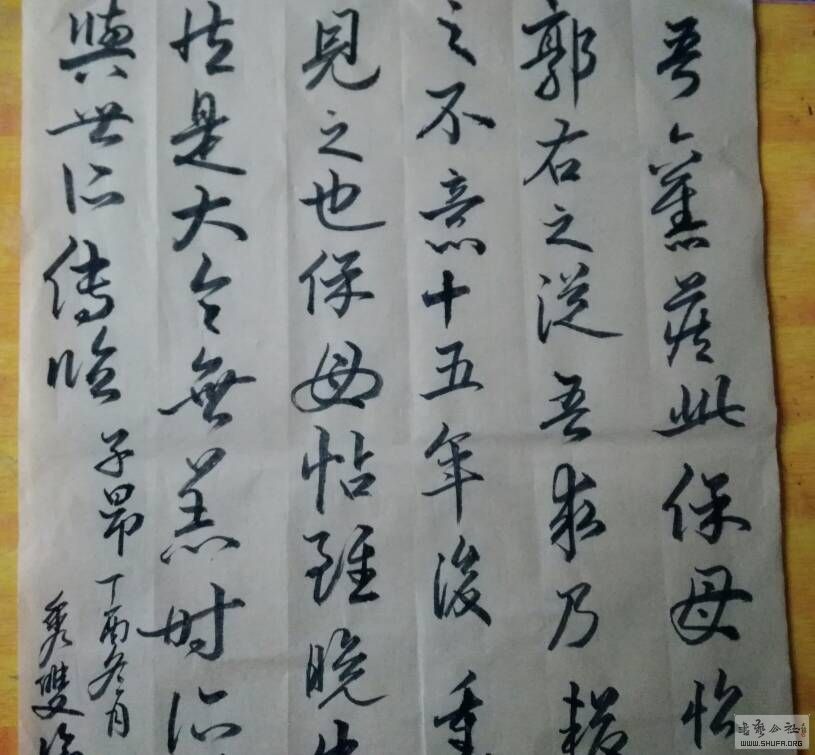 吾舊藏此保母帖
郭右之從吾求乃輟
之不意十五年後重
見之也保母帖雖晚出
故是大令無恙時所
與世所傳臨 子昂 丁酉冬月
书艺公社
WWW.SHUFA.ORG